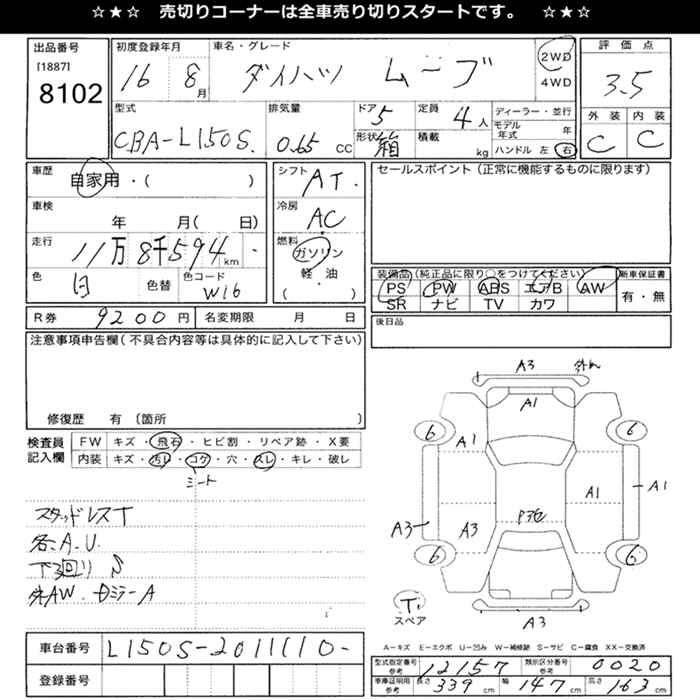 ☆★☆ 売切りコーナーは全車売り切りスタートです。 ☆★☆
出品番号
[1887]
8102
初度登録年月
16 8月
車名・グレード
ダイハツ ムーブ
2WD
4WD
評価点
3.5
外装 内装
C C
型式
CBA-L150S.
排気量
0.65 CC
ドア 5
形状 箱
定員 4人
積載 kg
ディーラー・並行
モデル年式 年
ハンドル 左 右
車歴
自家用・( )
車検
年 月( 日)
走行
11万8千594km
色
白
色替
色コード
W16
シフト
AT.
冷房
AC
燃料
ガソリン
軽・油
( )
セールスポイント(正常に機能するものに限ります)
装備品(純正品に限り○をつけてください)
PS PW ABS エアB AW
SR ナビ TV カワ
新車保証書
有・無
R券 9200円
名変期限 月 日
後日品
注意事項申告欄(不具合内容等は具体的に記入して下さい)
修復歴 有 (箇所 )
検査員記入欄
FW キズ・飛石・ヒビ割・リペア跡・X要
内装 キズ・汚レ・コゲ・穴・スレ・キレ・破レ
シート
スタッドレスT
各A.U.
下回りS
外AW.
A
A3 外
A1
6 6
A1
A1 A1
A3 A3
6 6
T
スペア
A3
A-キズ E-エクボ U-凹み W-補修跡 S-サビ C-腐食 XX-交換済
車台番号 L150S-2011110-
登録番号
型式指定番号 参考 12157
類別区分番号 参考 0020
車庫証明用 参考 長さ 339cm 幅 147cm 高さ 163cm